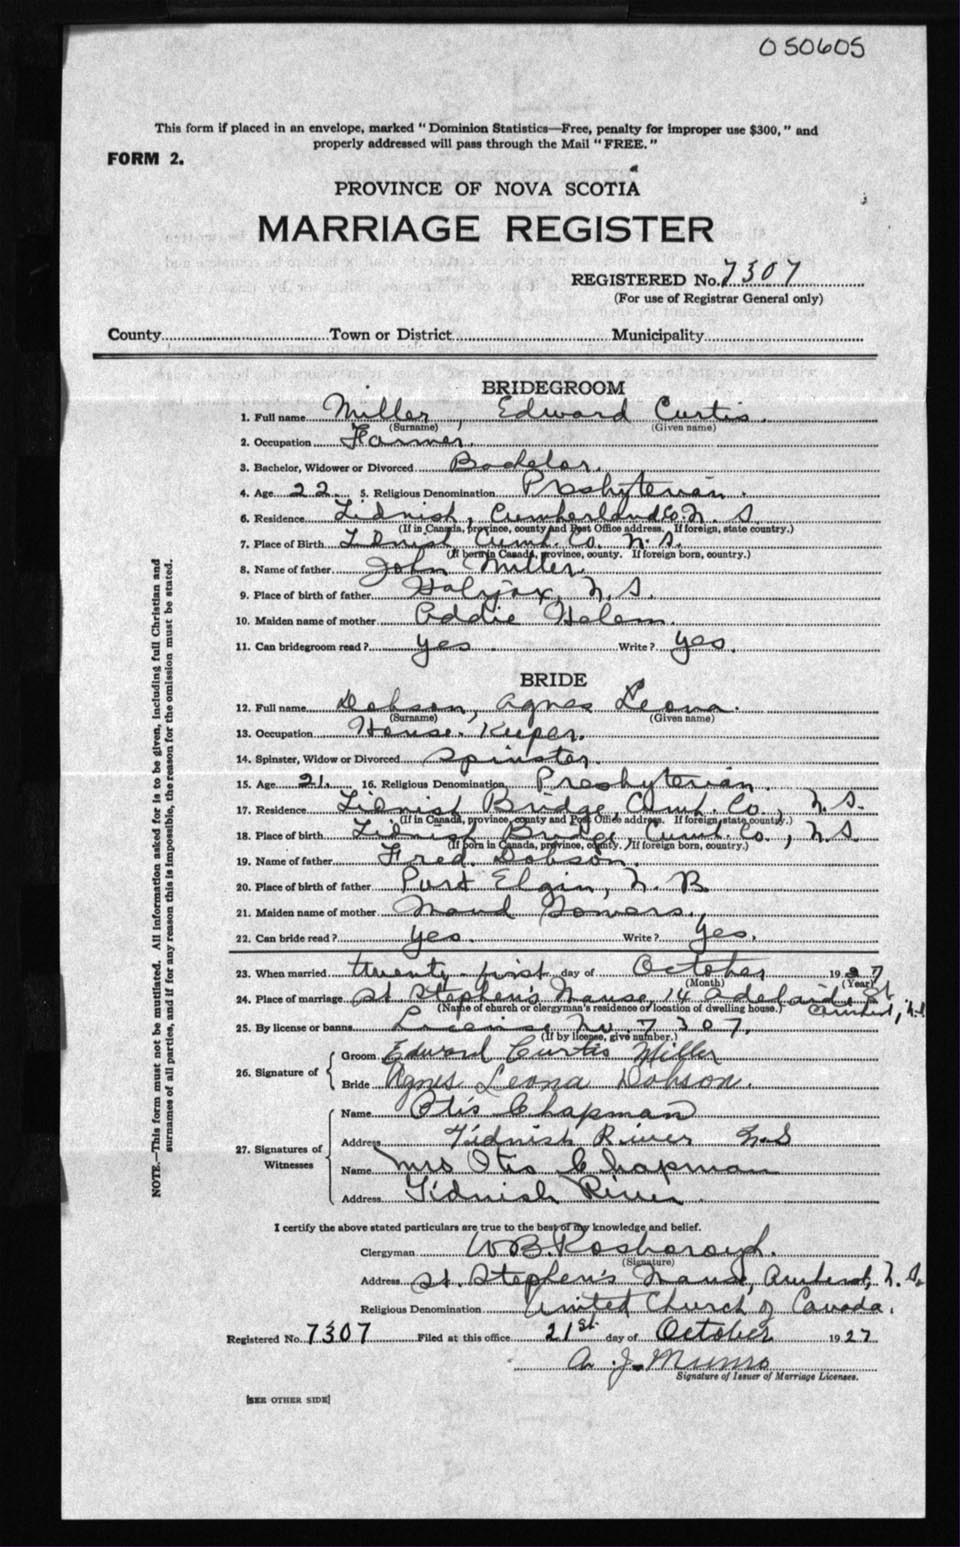 050605
This form if placed in an envelope, marked "Dominion Statistics—Free, penalty for improper use $300," and
properly addressed will pass through the Mail "FREE."
FORM 2.
PROVINCE OF NOVA SCOTIA
MARRIAGE REGISTER
REGISTERED No. 7307
(For use of Registrar General only)
County Town or District Municipality
BRIDEGROOM
1. Full name Miller, Edward Curtis.
(Surname) (Given name)
2. Occupation Farmer.
3. Bachelor, Widower or Divorced Bachelor.
4. Age 22 5. Religious Denomination Presbyterian.
6. Residence Tidnish, Cumberland Co. N. S.
(If in Canada, province, county and Post Office address. If foreign, state country.)
7. Place of Birth Tidnish Cumb. Co. N. S.
(If born in Canada, province, county. If foreign born, country.)
8. Name of father John Miller.
9. Place of birth of father Halifax, N. S.
10. Maiden name of mother Addie
11. Can bridegroom read? yes Write? yes.
BRIDE
12. Full name Dobson, Agnes Leona.
(Surname) (Given name)
13. Occupation House Keeper.
14. Spinster, Widow or Divorced Spinster.
15. Age 21. 16. Religious Denomination Presbyterian.
17. Residence Tidnish Bridge, Cumb. Co., N. S.
(If in Canada, province, county and Post Office address. If foreign, state country.)
18. Place of birth Tidnish Bridge, Cumb. Co., N S
(If born in Canada, province, county. If foreign born, country.)
19. Name of father Fred Dobson.
20. Place of birth of father Port Elgin, N. B
21. Maiden name of mother Maud
22. Can bride read? yes. Write? yes.
23. When married twenty-first day of October 1927
(Month) (Year)
24. Place of marriage St Stephen's Manse, 14 Adelaide St Amherst, N.S
(Name of church or clergyman's residence or location of dwelling house.)
25. By license or banns License No. 7307.
(If by license, give number.)
26. Signature of
Groom Edward Curtis Miller
Bride Agnes Leona Dobson.
27. Signatures of Witnesses
Name Otis Chapman
Address Tidnish River N.S
Name Mrs Otis Chapman
Address Tidnish River
I certify the above stated particulars are true to the best of my knowledge and belief.
Clergyman W B. Rosborough.
(Signature)
Address St. Stephen's Manse, Amherst, N. S.
Religious Denomination United Church of Canada.
Registered No. 7307 Filed at this office 21st day of October 1927
A. J. Munro
Signature of Issuer of Marriage Licenses.
[SEE OTHER SIDE]
NOTE.—This form must not be mutilated. All information asked for is to be given, including full Christian and
surnames of all parties, and if for any reason this is impossible, the reason for the omission must be stated.